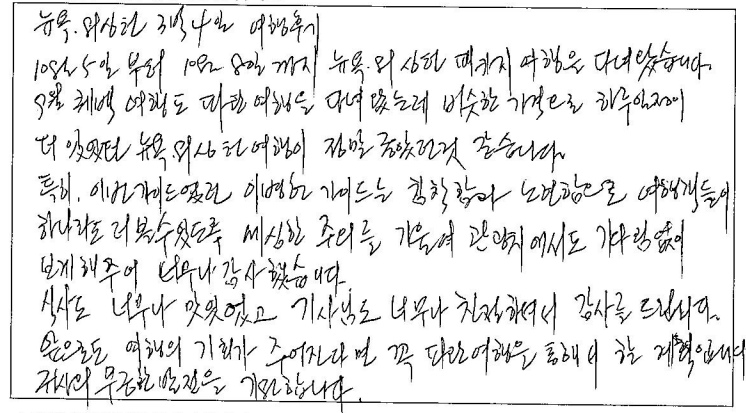 뉴욕. 워싱턴 3박 4일 여행후기
10월 5일 부터 10월 8일 까지 뉴욕. 워싱턴 패키지 여행을 다녀 왔습니다.
9월 퀘벡 여행도 파란 여행을 다녀 왔는데 비슷한 가격으로 하루일정이
더 있었던 뉴욕 워싱턴 여행이 정말 좋았던것 같습니다.
특히. 이번가이드였던 가이드는 침착함과 노련함으로 여행객들이
하나라도 더 볼수있도록 세심한 주의를 기울여 관광지에서도 기다림 없이
보게 해주어 너무나 감사했습니다.
식사도 너무나 맛있었고 기사님도 너무나 친절하셔서 감사를 드립니다.
앞으로도 여행의 기회가 주어진다면 꼭 파란여행을 통해서 할 계획입니다
귀사의 무궁한 발전을 기원합니다.